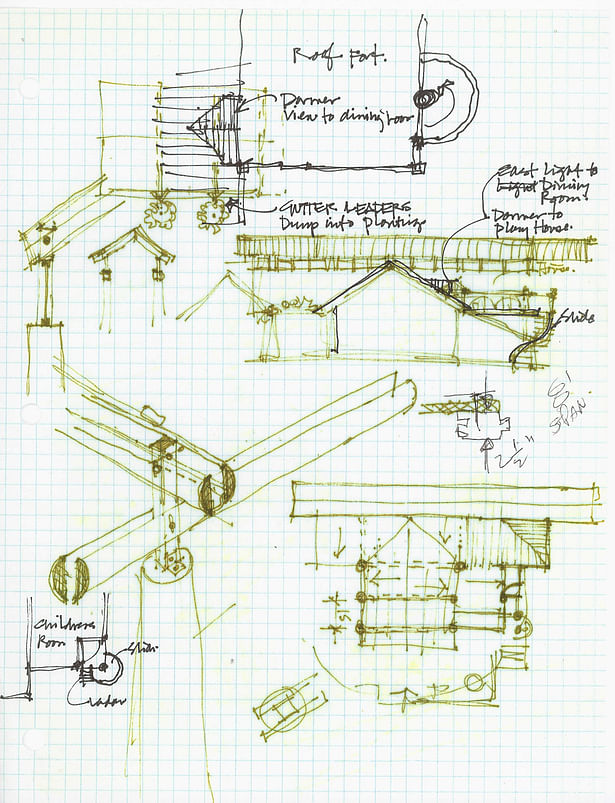 Roof Fort.
Dormer
View to dining room
GUTTER LEADERS
Dump into Planting
East Light to
Light Dining
Room.
Dormer to
Play House.
House.
Slide
SPAN.
2 1/2"
Childrens
Room
Slide
Ladder